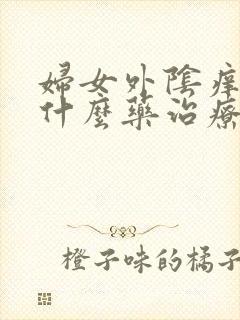 婦女外陰痒
什麼藥治療
橙子味的橘子